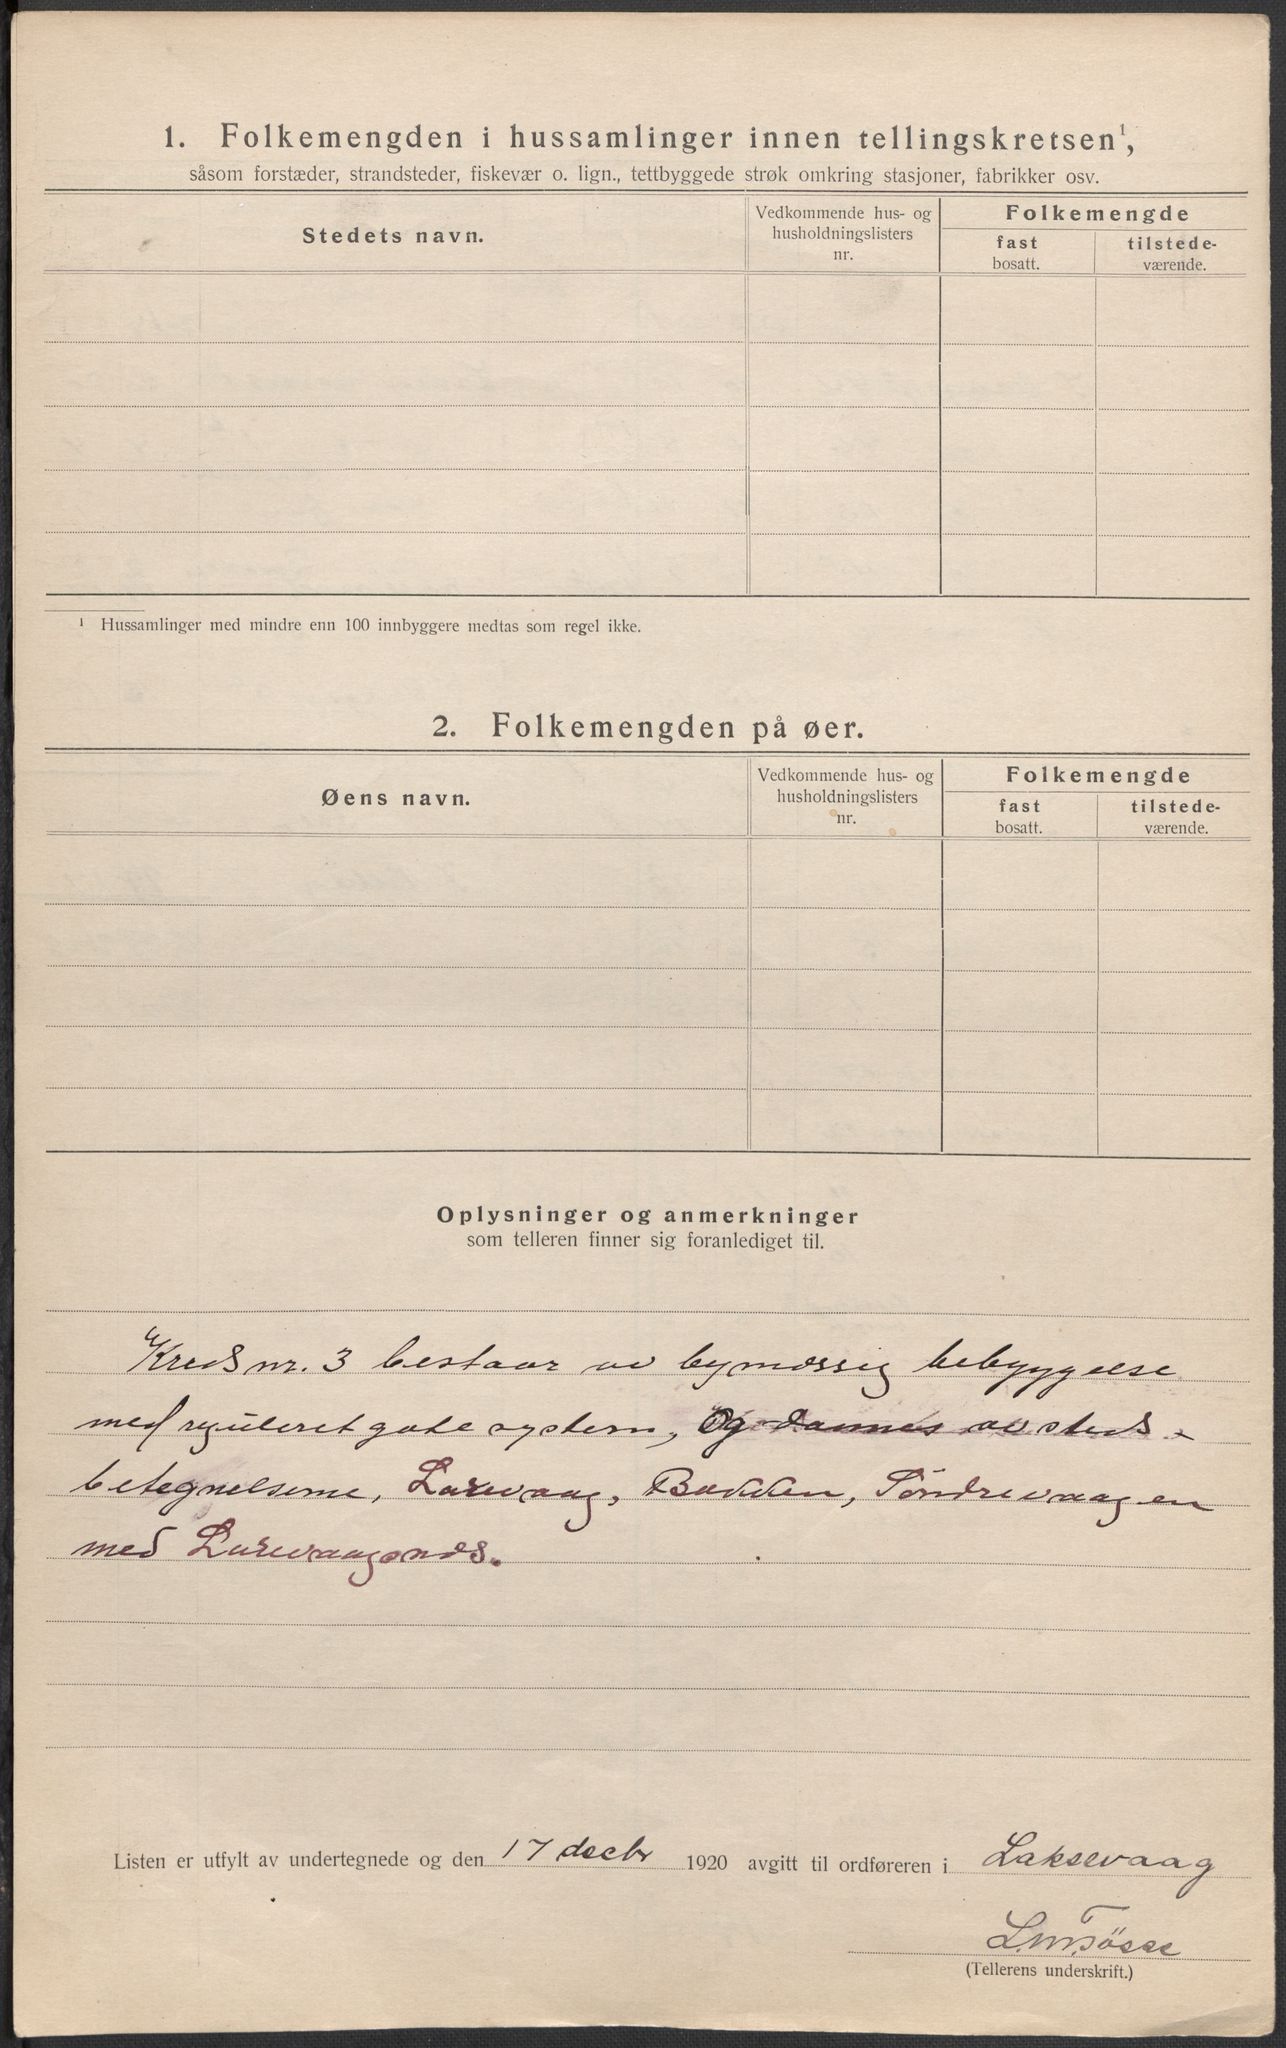 1. Folkemengden i hussamlinger innen tellingskretsen¹,
såsom forstæder, strandsteder, fiskevær o. lign., tettbyggede strøk omkring stasjoner, fabrikker osv.
Stedets navn.
Vedkommende hus- og
husholdningslisters
nr.
Folkemengde
fast
bosatt.
tilstede-
værende.
¹ Hussamlinger med mindre enn 100 innbyggere medtas som regel ikke.
2. Folkemengden på øer.
Øens navn.
Vedkommende hus- og
husholdningslisters
nr.
Folkemengde
fast
bosatt.
tilstede-
værende.
Oplysninger og anmerkninger
som telleren finner sig foranlediget til.
Kreds nr. 3 bestaar av bymæssig bebyggelse
med reguleret gate system, Og dannes av steds-
betegnelserne, Laxevaag, Bakken, Söndrevaagen
med Laxevaagsnæs.
Listen er utfylt av undertegnede og den 17 decbr 1920 avgitt til ordføreren i Laksevaag
(Tellerens underskrift.)